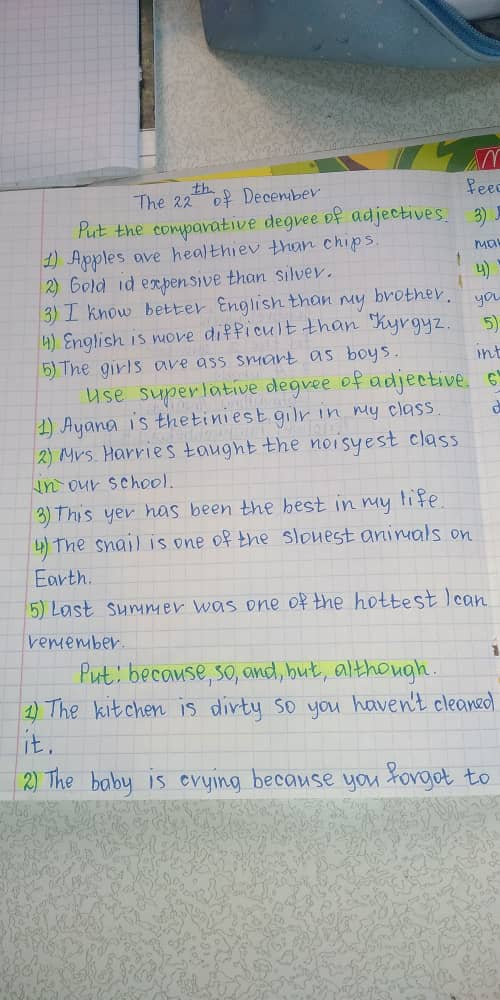 The 22th of December
Put the comparative degree of adjectives.
1) Apples are healthier than chips.
2) Gold id expensive than silver.
3) I know better English than my brother.
4) English is more difficult than Kyrgyz.
5) The girls are ass smart as boys.
Use superlative degree of adjective.
1) Ayana is thetiniest gilr in my class.
2) Mrs. Harries taught the noisyest class
in our school.
3) This yer has been the best in my life.
4) The snail is one of the slowest animals on
Earth.
5) Last summer was one of the hottest I can
remember.
Put: because, so, and, but, although.
1) The kitchen is dirty so you haven't cleaned
it.
2) The baby is crying because you forgot to
feed
3)
4)
5)
6)